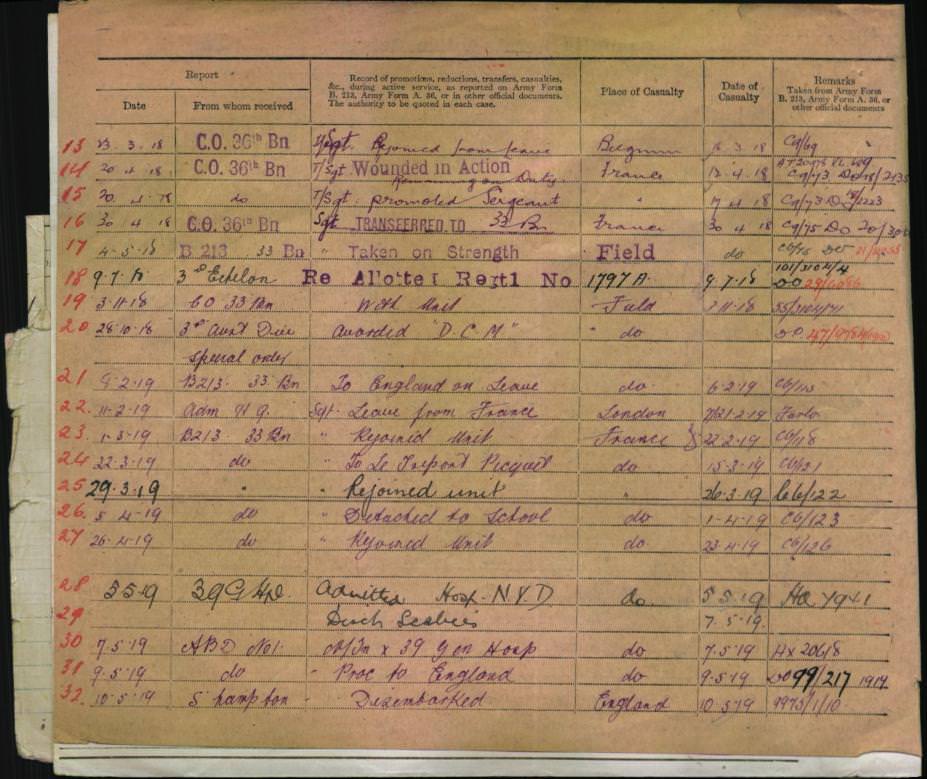 Report
Record of promotions, reductions, transfers, casualties, &c., during active service, as reported on Army Form B. 213, Army Form A. 36, or in other official documents. The authority to be quoted in each case.
Place of Casualty
Date of Casualty
Remarks Taken from Army Form B. 213, Army Form A. 36, or other official documents
Date From whom received
13 23.3.18 C.O. 36th Bn T/Sgt. Rejoined from leave Belgium 3.18
14 20.4.18 C.O. 36th Bn T/Sgt Wounded in Action France 4.18
Remaining on Duty
15 20.4.18 do T/Sgt. promoted Sergeant " 4.18
16 30 4 18 C.O. 36th Bn Sgt TRANSFERRED TO 33 Bn France 30 4 18
17 4-5-18 B 213 33 Bn " Taken on Strength Field do
18 9.7.18 3rd Echelon Re Allotted Regtl No 1797A. 9.7.18
19 3.11.18 CO 33 Bn With Unit Field 11.18
20 28.10.18 3rd Aust Divn awarded "D.C.M" do
special order
21 9.2.19 B213. 33 Bn To England on Leave do 6.2.19
22. 11.2.19 Adm Hq. Sgt. Leave from France London Furlo
23. 1.3.19 B213. 33 Bn " Rejoined Unit France 22.2.19
24 22.3.19 do " To Le Treport Picquet do 15.3.19
25 29.3.19 " " Rejoined unit " 26.3.19 C6/122
26. 5.4.19 do " Detached to School do 1.4.19 C6/123
27 26.4.19 do " Rejoined Unit do 23.4.19 C6/126
28 5 5 19 39 G Hpl. Admitted Hosp. N.Y.D do. 5 5 19
29 Disch Scabies 7.5.19.
30 7.5.19 ABD No1. 39 Gen Hosp do 7.5.19 Hx 20618
31 9.5.19 do Proc to England do 9.5.19 DO 99/217 1919.
32. 10.5.19 S'hampton Disembarked England 10 5 19 9975/1/10